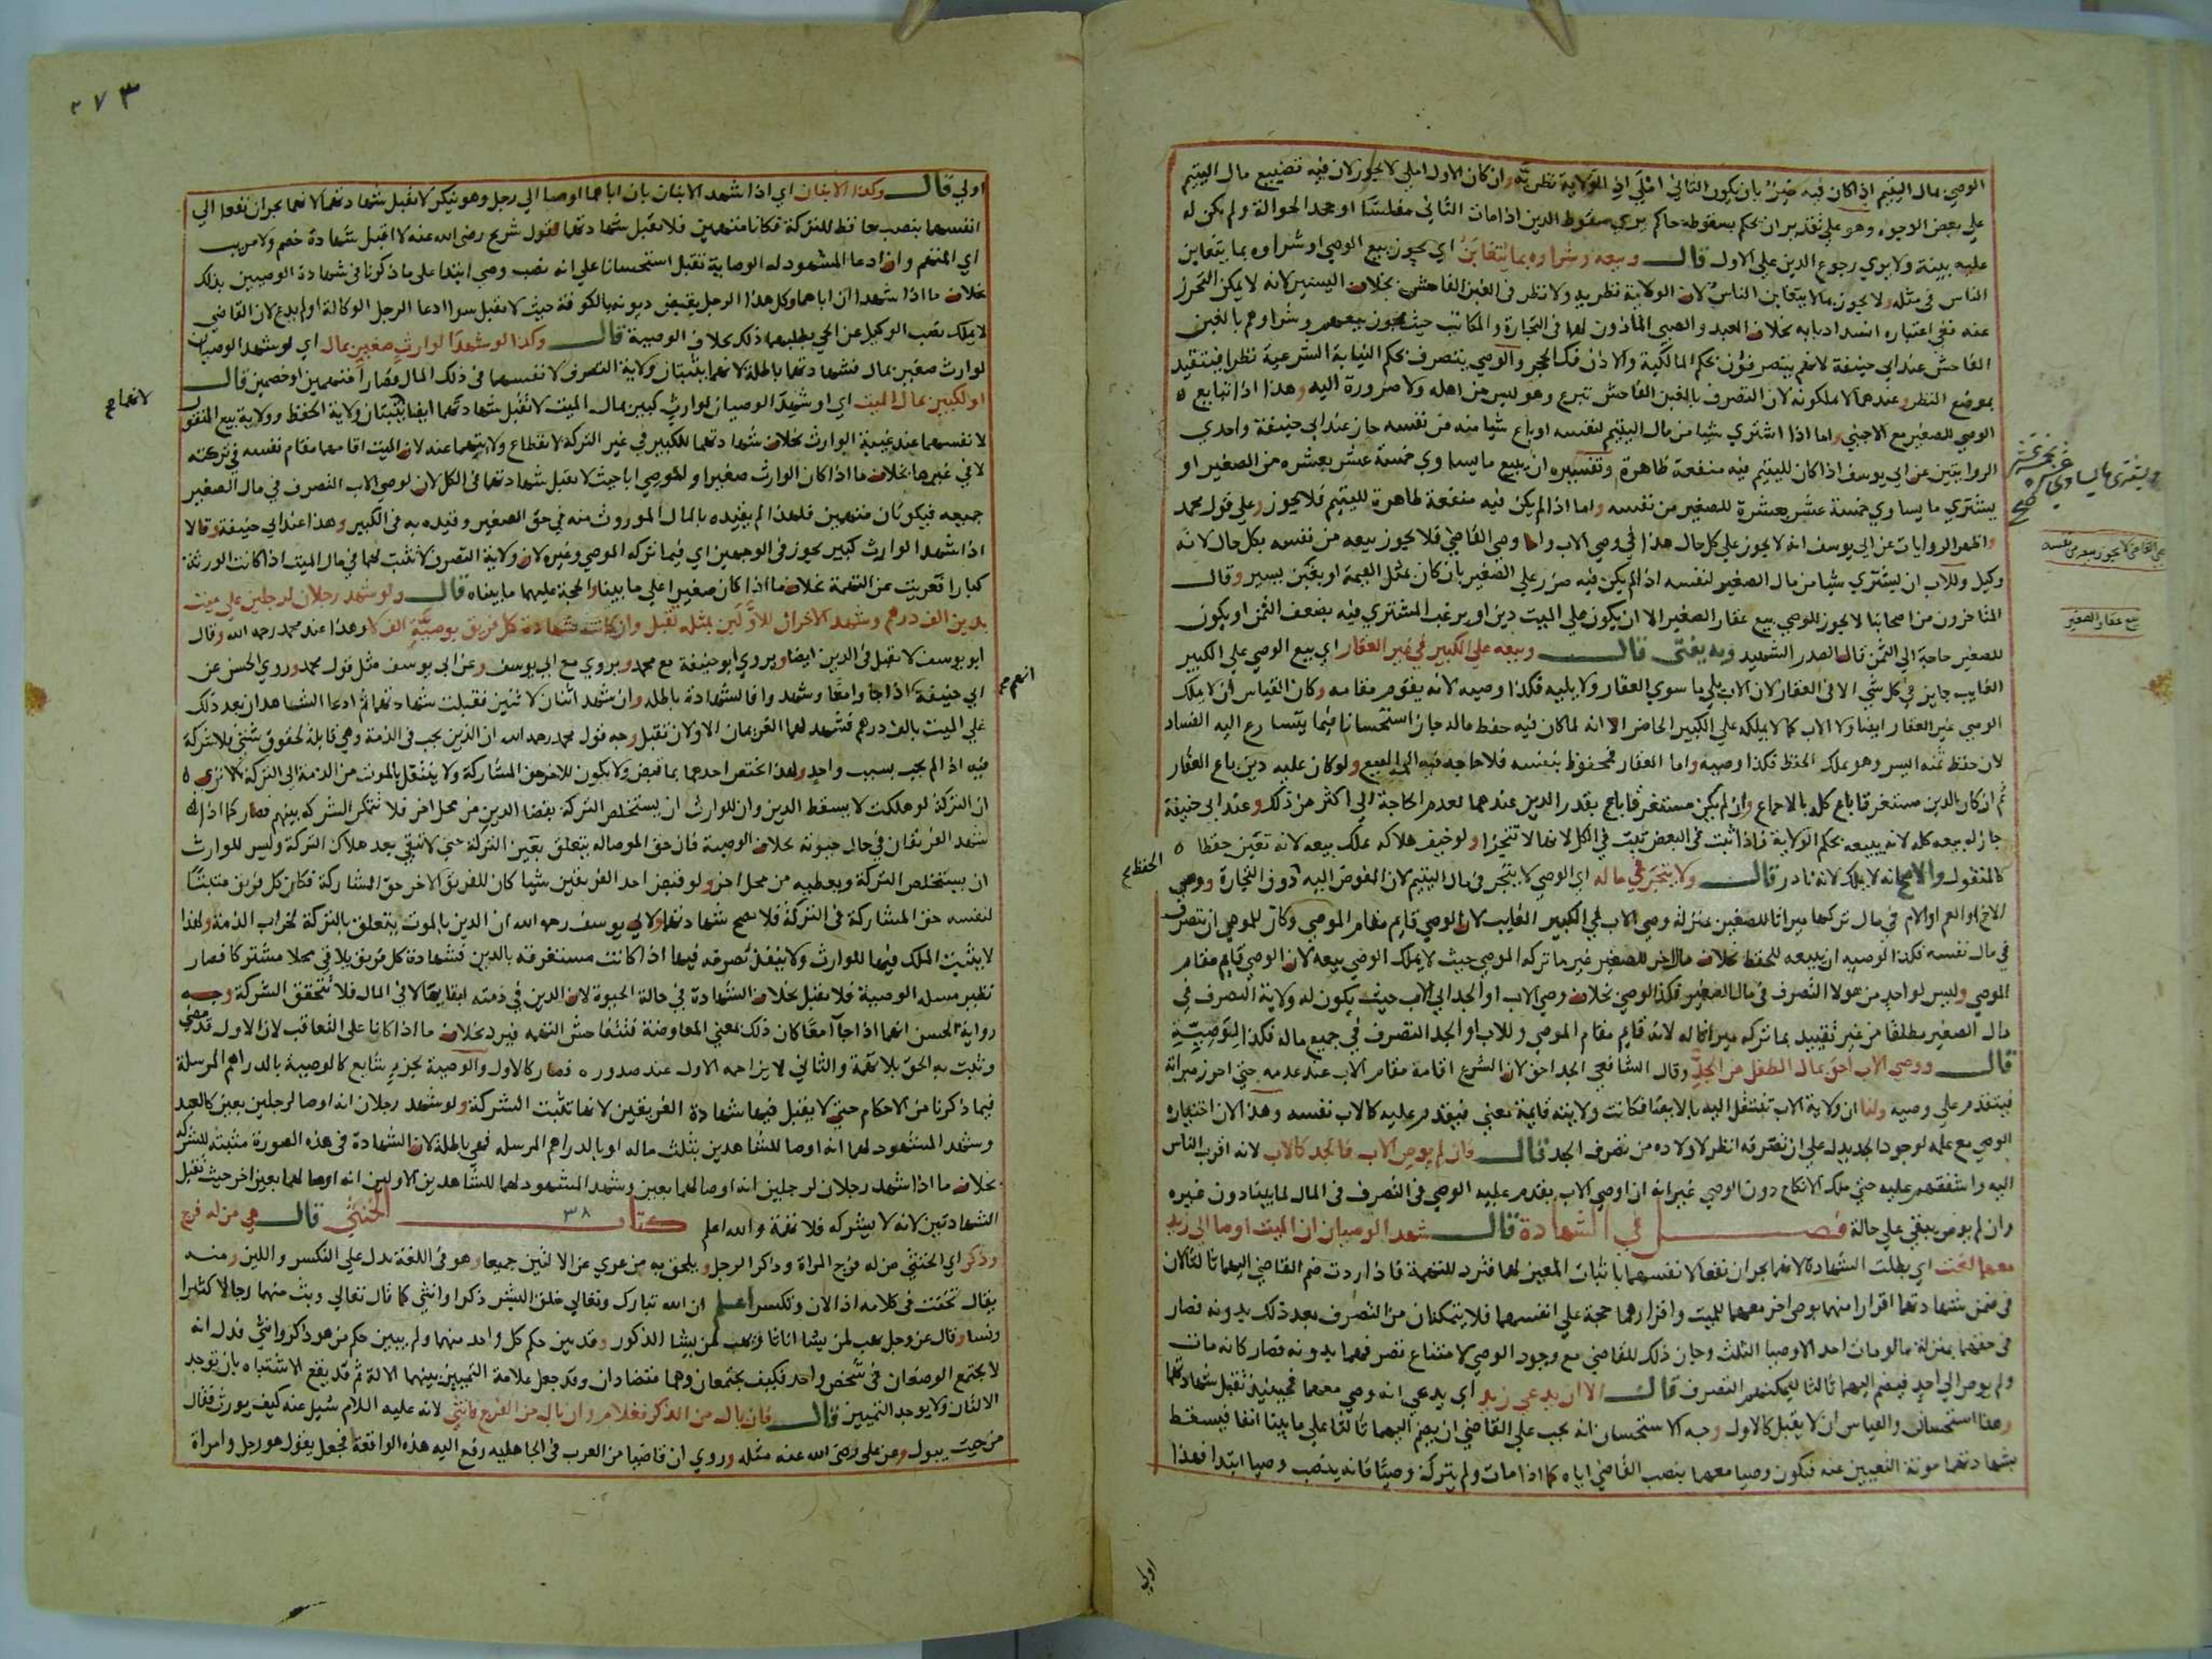 الوصي بمال اليتيم اذا كان فيه خير بان يكون الثاني املى اذ الولاية نظرية وان كان الاول املى لا يجوز لان فيه تضييع مال اليتيم
على بعض الوجوه وهو على تقدير ان يحكم بسقوطه حاكم يرى سقوط الدين اذا مات الثاني مفلسا او جحد الحوالة ولم يكن له
عليه بينة ولا يرى رجوع الدين على الاول قال وبيعه وشراوه بما يتغابن اي يجوز بيع الوصي او شراوه بما يتغابن
الناس في مثله ولا يجوز بما لا يتغابن الناس لان الولاية نظرية ولا نظر في الغبن الفاحش بخلاف اليسير لانه لا يمكن التحرز
عنه ففي اعتباره انسداد بابه بخلاف العبد والصبي الماذون لهما في التجارة والمكاتب حيث يجوز بيعهم وشراوهم بالغبن
الفاحش عند ابي حنيفة لانهم يتصرفون بحكم المالكية والاذن فك الحجر والوصي يتصرف بحكم النيابة الشرعية نظرا فيتقيد
بموضع النظر وعندهما لا يملكونه لان التصرف بالغبن الفاحش تبرع وهو ليس من اهله ولا ضرورة اليه وهذا اذا تبايع
الوصي للصغير مع الاجنبي واما اذا اشترى شيا من مال اليتيم لنفسه او باع شيا منه من نفسه جاز عند ابي حنيفة واحدى
الروايتين عن ابي يوسف اذا كان لليتيم فيه منفعة ظاهرة وتفسيره ان يبيع ما يساوي خمسة عشر بعشرة من الصغير او
يشتري ما يساوي خمسة عشر بعشرة للصغير من نفسه واما اذا لم يكن فيه منفعة ظاهرة لليتيم فلا يجوز وعلى قول محمد
واظهر الروايات عن ابي يوسف انه لا يجوز على كل حال هذا في وصي الاب واما وصي القاضي فلا يجوز بيعه من نفسه بكل حال لانه
وكيل وللاب ان يشتري شيا من مال الصغير لنفسه اذا لم يكن فيه ضرر على الصغير بان كان بمثل القيمة او بغبن يسير وقال
المتاخرون من اصحابنا لا يجوز للوصي بيع عقار الصغير الا ان يكون على الميت دين او يرغب المشتري فيه بضعف الثمن او يكون
للصغير حاجة الى الثمن قال الصدر الشهيد وبه يفتى قال وبيعه على الكبير في غير العقار اي بيع الوصي على الكبير
الغايب جايز في كل شي الا في العقار لان الاب يلي ما سوى العقار ولا يليه فكذا وصيه لانه يقوم مقامه وكان القياس ان لا يملك
الوصي غير العقار ايضا ولا الاب كما لا يملكه على الكبير الحاضر الا انه لما كان فيه حفظ ماله جاز استحسانا فيما يتسارع اليه الفساد
لان حفظ ثمنه ايسر وهو يملك الحفظ فكذا وصيه واما العقار فمحفوظ بنفسه فلا حاجة فيه الى البيع ولو كان عليه دين باع العقار
ثم ان كان الدين مستغرقا باع كله بالاجماع وان لم يكن مستغرقا باع بقدر الدين عندهما لعدم الحاجة الى اكثر من ذلك وعند ابي حنيفة
جاز له بيعه كله لانه يبيعه بحكم الولاية فاذا ثبت في البعض ثبت في الكل لانها لا تتجزا ولو خيف هلاكه يملك بيعه لانه تعين حفظا
كالمنقول والاصح انه لا يملك لانه نادر قال ولا يتجر في ماله اي الوصي لا يتجر في مال اليتيم لان المفوض اليه دون التجارة ووصي
الاخ او العم او الام في مال تركها ميراثا للصغير بمنزلة وصي الاب في الكبير الغايب لان الوصي قايم مقام الموصي وكان للموصي ان يتصرف
في مال نفسه فكذا لوصيه ان يبيعه للحفظ بخلاف مال اخر للصغير غير ما تركه الموصي حيث لا يملك الوصي بيعه لان الوصي قايم مقام
الموصي وليس لواحد من هولا التصرف في مال الصغير فكذا الوصي بخلاف وصي الاب او الجد ابي الاب حيث يكون له ولاية التصرف في
مال الصغير مطلقا من غير تقييد بما تركه ميراثا له لانه قايم مقام الموصي وللاب او الجد التصرف في جميع ماله فكذا لوصيه
قال ووصي الاب احق بمال الطفل من الجد وقال الشافعي الجد احق لان الشرع اقامه مقام الاب عند عدمه حتى احرز ميراثه
فيتقدم على وصيه ولنا ان ولاية الاب تنتقل اليه بالايصا فكانت ولايته قايمة معنى فيقدم عليه كالاب نفسه وهذا لان اختياره
الوصي مع علمه لوجود الجد يدل على ان تصرفه انظر لاولاده من تصرف الجد قال فان لم يوص الاب فالجد كالاب لانه اقرب الناس
اليه واشفقهم عليه حتى ملك الانكاح دون الوصي غير انه ان اوصى الاب يقدم عليه الوصي في التصرف في المال لما بينا دون غيره
وان لم يوص يبقى على حاله فصل في الشهادة قال شهد الوصيان ان الميت اوصى الى زيد
معهما لغت اي بطلت الشهادة لانهما يجران نفعا لانفسهما باثبات المعين لهما فترد للتهمة فاذا ردت ضم القاضي اليهما ثالثا لان
في ضمن شهادتهما اقرارا منهما بوصي اخر معهما للميت واقرارهما حجة على انفسهما فلا يتمكنان من التصرف بعد ذلك بدونه فصار
في حقهما بمنزلة ما لو مات احد الاوصيا الثلث وجاز ذلك للقاضي مع وجود الوصي لامتناع تصرفهما بدونه فصار كانه مات
ولم يوص الى احد فيضم اليهما ثالثا ليمكنهم التصرف قال الا ان يدعي زيد اي يدعي انه وصي معهما فحينيذ تقبل شهادتهما
وهذا استحسان والقياس ان لا يقبل كالاول وجه الاستحسان انه يجب على القاضي ان يضم اليهما ثالثا على ما بينا انفا فيسقط
بشهادتهما مونة التعيين عنه فيكون وصيا معهما بنصب القاضي اياه كما اذا مات ولم يترك وصيا فانه ينصب وصيا ابتدا فهذا
ويشتري ما يساوي عشرة بخمسة عشر صح
بيع عقار الصغير
الحفظ صح
اولى
٣٧٣
اولى قال وكذا الابنان اي اذا شهد الابنان بان اباهما اوصا الى رجل وهو ينكر لا تقبل شهادتهما لانهما يجران نفعا الى
انفسهما بنصب حافظ للتركة فكانا متهمين فلا تقبل شهادتهما لقول شريح رضي الله عنه لا اقبل شهادة خصم ولا مريب
اي المتهم وان ادعا المشهود له الوصاية تقبل استحسانا على انه نصب وصي ابتدا على ما ذكرنا في شهادة الوصيين بذلك
بخلاف ما اذا شهدا ان اباهما وكل هذا الرجل بقبض ديونه بالكوفة حيث لا تقبل سوا ادعا الرجل الوكالة او لم يدع لان القاضي
لا يملك نصب الوكيل عن الحي بطلبهما ذلك بخلاف الوصية قال وكذا لو شهدا لوارث صغير بمال اي لو شهد الوصيان
لوارث صغير بمال فشهادتهما باطلة لانهما يثبتان ولاية التصرف لانفسهما في ذلك المال فصارا متهمين او خصمين قال
او لكبير بمال الميت اي او شهد الوصيان لوارث كبير بمال الميت لا تقبل شهادتهما ايضا يثبتان ولاية الحفظ وولاية بيع المنقول
لانفسهما عند غيبة الوارث بخلاف شهادتهما للكبير في غير التركة لانقطاع ولايتهما عنه لان الميت اقامهما مقام نفسه في تركته
لا في غيرها بخلاف ما اذا كان الوارث صغيرا والموصي ابا حيث لا تقبل شهادتهما في الكل لان لوصي الاب التصرف في مال الصغير
جميعه فيكونان متهمين فلهذا لم يقيده بالمال الموروث منه في حق الصغير وقيده به في الكبير وهذا عند ابي حنيفة وقالا
اذا شهدا لوارث كبير يجوز في الوجهين اي فيما تركه الموصي وغيره لان ولاية التصرف لا تثبت لهما في مال الميت اذا كانت الورثة
كبارا فعريت عن التهمة بخلاف ما اذا كان صغيرا على ما بينا والحجة عليهما ما بيناه قال ولو شهد رجلان لرجلين على ميت
بدين الف درهم وشهد الاخران للاولين بمثله تقبل وان كانت شهادة كل فريق بوصية الف لا وهذا عند محمد رحمه الله وقال
ابو يوسف لا تقبل في الدين ايضا ويروى ابو حنيفة مع محمد ويروى مع ابي يوسف وعن ابي يوسف مثل قول محمد وروى الحسن عن
ابي حنيفة اذا جاوا معا وشهدوا فالشهادة باطلة وان شهد اثنان لاثنين فقبلت شهادتهما ثم ادعا الشاهدان بعد ذلك
على الميت بالف درهم فشهد لهما الغريمان الاولان تقبل وجه قول محمد رحمه الله ان الدين يجب في الذمة وهي قابلة لحقوق شتى فلا شركة
فيه اذا لم يجب بسبب واحد ولهذا يختص احدهما بما قبض ولا يكون للاخر حق المشاركة ولا ينتقل بالموت من الذمة الى التركة الا ترى
ان التركة لو هلكت لا يسقط الدين وان للوارث ان يستخلص التركة بقضا الدين من محل اخر فلا تتمكن الشركة بينهم فصار كما اذا
شهد الفريقان في حال حيوته بخلاف الوصية فان حق الموصا له يتعلق بعين التركة حتى لا تبقى بعد هلاك التركة وليس للوارث
ان يستخلص التركة ويعطيه من محل اخر ولو قبض احد الفريقين شيا كان للفريق الاخر حق المشاركة فكان كل فريق مثبتا
لنفسه حق المشاركة في التركة فلا تصح شهادتهما ولابي يوسف رحمه الله ان الدين بالموت يتعلق بالتركة لخراب الذمة ولهذا
لا يثبت الملك فيها للوارث ولا ينفذ تصرفه فيها اذا كانت مستغرقة بالدين فشهادة كل فريق يلاقي محلا مشتركا فصار
نظير مسلة الوصية فلا تقبل بخلاف الشهادة في حالة الحيوة لان الدين في ذمته لبقايها لا في المال فلا تتحقق الشركة وجه
رواية الحسن انهما اذا جاآ معا كان ذلك بمعنى المعاوضة فتتفاحش التهمة فيرد بخلاف ما اذا كانا على التعاقب لان الاول قد مضى
وثبت به الحق بلا تهمة والثاني لا يزاحمه الاول عند صدوره فصار كالاول والوصية بجزء شايع كالوصية بالدراهم المرسلة
فيما ذكرنا من الاحكام حتى لا يقبل فيها شهادة الفريقين لانها تثبت الشركة ولو شهد رجلان انه اوصا لرجلين بعين كالعبد
وشهد المشهود لهما انه اوصا للشاهدين بثلث ماله او بالدراهم المرسلة فهي باطلة لان الشهادة في هذه الصورة مثبتة للشركة
بخلاف ما اذا شهد رجلان لرجلين انه اوصا لهما بعين وشهد المشهود لهما للشاهدين الاولين انه اوصا لهما بعين اخر حيث تقبل
الشهادتين لانه لا شركة فلا تهمة والله اعلم كتاب ٣٨ الخنثى قال هي من له فرج
وذكر اي الخنثى من له فرج المراة وذكر الرجل ويلحق به من عري عن الالتين جميعا وهو في اللغة يدل على التكسر واللين ومنه
يقال تخنث في كلامه اذا لان وتكسر اعلم ان الله تبارك وتعالى خلق البشر ذكرا وانثى كما قال تعالى وبث منهما رجالا كثيرا
ونسا وقال عز وجل يهب لمن يشا اناثا ويهب لمن يشا الذكور وقد بين حكم كل واحد منهما ولم يبين حكم من هو ذكر وانثى فدل انه
لا يجتمع الوصفان في شخص واحد فكيف يجتمعان وهما متضادان وقد جعل علامة التمييز بينهما الالة ثم قد يقع الاشتباه بان توجد
الالتان ولا يوجد التمييز قال فان بال من الذكر فغلام وان بال من الفرج فانثى لانه عليه السلام سئل عنه كيف يورث فقال
من حيث يبول وعن علي رضي الله عنه مثله وروي ان قاضيا من العرب في الجاهلية رفع اليه هذه الواقعة فجعل يقول هو رجل وامراة
لانهما صح